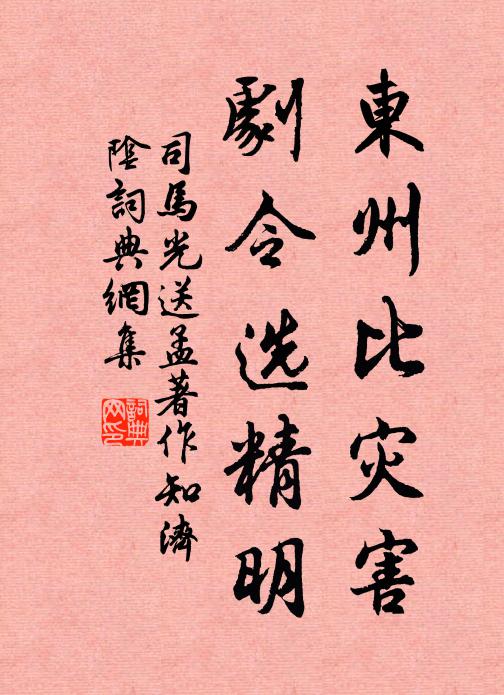 東州比灾害
劇令选精明
司馬光送孟著作知濟
陰詞典網集
詞典網印